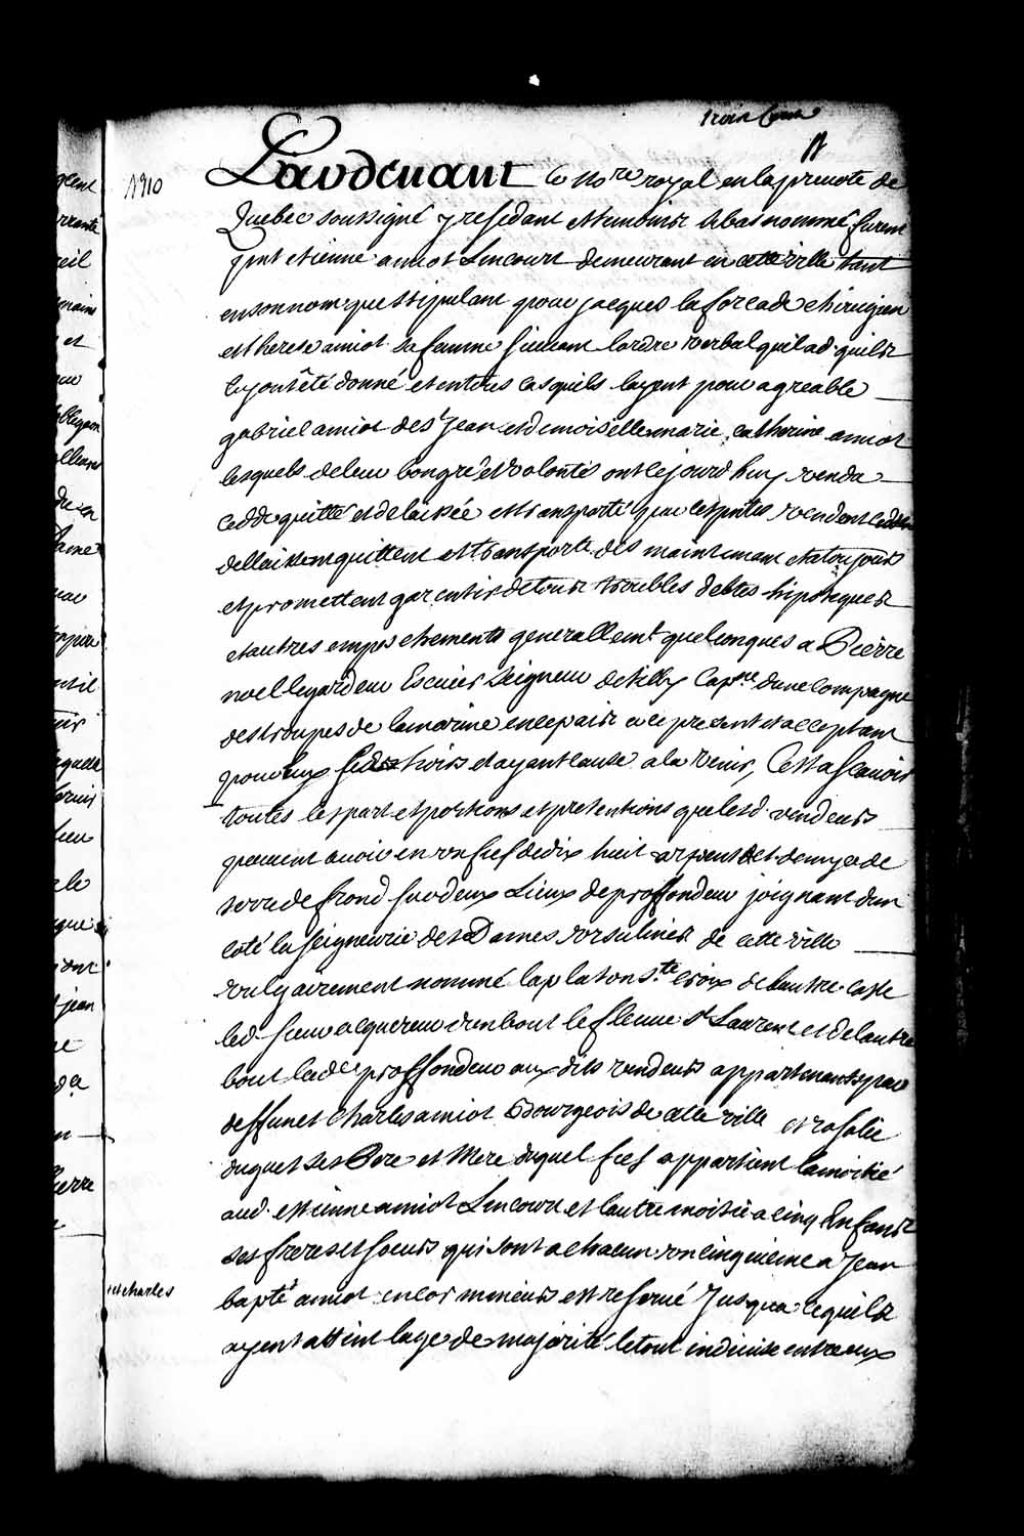 1910
Pardevant le no.re royal en la prevote de
Quebec soussigné y residant et temoins cy bas nommé furent
pnt etienne amiot Lincourt demeurant en cette ville tant
en son nom que stipulant pour jacques la forcade chirugien
et therese amiot sa femme suivant lordre verbal quil ad quils
luy ont été donné et entous cas quils layent pour agreable
gabriel amiot de st jean et demoiselle marie catherine amiot
lesquels de leur bon gré et volontés ont cejourdhuy vendu
cedde quitté et delaissée et transporté par ces pntes vendent cedde
dellaissent quittent et transporte des maintenant et a toujours
et promettent garentir de tous troubles debtes hipoteques
et autres empeschements generallemt quelconques a Pierre
noel legardeur Escuier Seigneur de tilly Cap.ne dune Compagne
des troupes de la marine en ce païs a ce present et acceptant
pour luy ses hoirs et ayant cause a la venir, Cest a scavoir
toutes les part et portions et pretentions que lesd. vendeurs
peuvent avoir en un fief de dix huit arpents et demy de
terre de frond sur deux Lieux de proffondeur joignant dun
coté la seigneurie des Dames ursulines de cette ville
vulgairement nommé la platon S.te croix de lautre coste
led. sieur acquereur dun bout le fleuve St Laurent et de lautre
bout lade proffondeur aux dits vendeurs appartenants par
deffunet Charles amiot Bourgeois de cette ville et rosalie
duquet ses Pere et Mere duquel fief appartient la moitié
aud. estienne amiot Lincourt et lautre moitié a cinq Enfans
ses freres et soeurs qui sont a chacun un cinquieme a Jean
et charles
bapte amiot encor mineurs est reservé Jusqua ce quils
ayent atteint lage de majorité le tout indivise entre eux